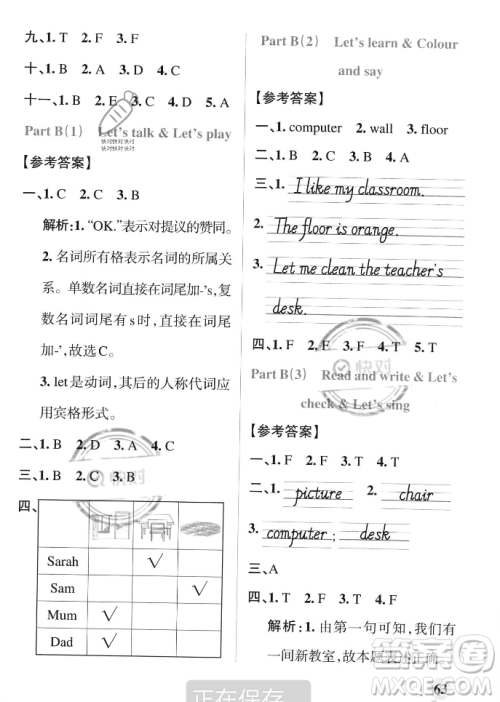 九、1. T  2. F  3. F
十、1. B  2. A  3. A  4. C
十一、1. B  2. E  3. C  4. D  5. A
快对快对快对
快对快对快对
Part B(1)  Let's talk & Let's play
【参考答案】
一、1. C  2. C  3. B
解析：1. “OK.”表示对提议的赞同。
2. 名词所有格表示名词的所属关
系。单数名词直接在词尾加-'s，复
数名词词尾有s时，直接在词尾
加-'即可，故选C。
3. let是动词，其后的人称代词应
用宾格形式。
二、1. B  2. D  3. A  4. C
三、1. B  2. C  3. B
快对
四、
Sarah √
Sam √
Mum √
Dad √
Part B(2)  Let's learn & Colour
and say
【参考答案】
一、1. computer  2. wall  3. floor
二、1. B  2. A  3. B  4. B
三、1. I like my classroom.
2. The floor is orange.
3. Let me clean the teacher's
desk.
四、1. F  2. E  3. F  4. T  5. T
快对
Part B(3)  Read and write & Let's
check & Let's sing
【参考答案】
一、1. F  2. F  3. T  4. T
二、1. picture  2. chair
3. computer; desk
三、A
四、1. T  2. F  3. T  4. F
解析：1. 由第一句可知，我们有
一间新教室，故本题表述正确。
63
正在保存